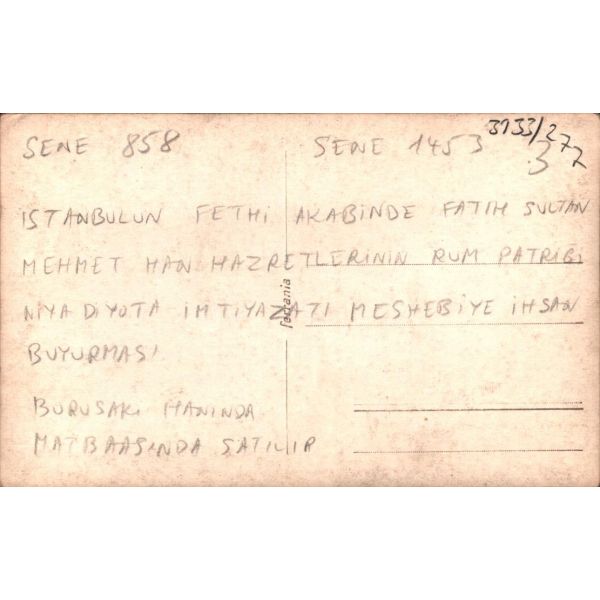 SENE 858 SENE 1453 3133/277
3
ISTANBULUN FETHİ AKABİNDE FATIH SULTAN
MEHMET HAN HAZRETLERİNİN RUM PATRİĞİ
NİYA DİYOTA İMTİYAZATI MESHEBİYE İHSAN
BUYURMASI
BURUSAKI HANINDA
MATBAASINDA SATILIR
ferrania